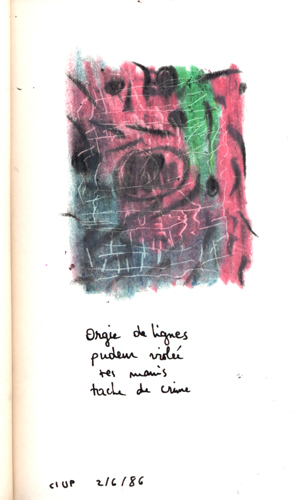 Orgie de lignes
pudeur violée
tes mains
tache de crime
CIUP 2/6/86